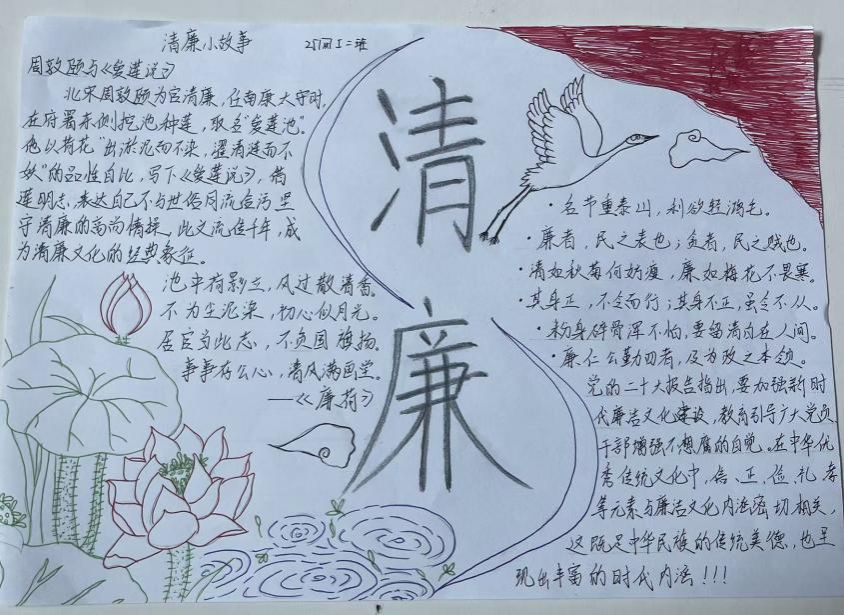 清廉小故事
周敦颐与《爱莲说》
北宋周敦颐为官清廉，任南康太守时，
在府署东侧挖池种莲，取名"爱莲池"。
他以荷花"出淤泥而不染，濯清涟而不
妖"的品性自比，写下《爱莲说》，借
莲明志，表达自己不与世俗同流合污坚
守清廉的高尚情操，此文流传千年，成
为清廉文化的经典象征。
池中荷影立，风过散清香。
不为尘泥染，初心似月光。
居官当此志，不负国旗扬。
事事存公心，清风满画堂。
——《廉荷》
清
廉
·名节重泰山，利欲轻鸿毛。
·廉者，民之表也；贪者，民之贼也。
·清如秋菊何妨瘦，廉如梅花不畏寒。
·其身正，不令而行；其身不正，虽令不从。
·粉身碎骨浑不怕，要留清白在人间。
·廉仁公勤四者，及为政之本领。
党的二十大报告指出，要加强新时
代廉洁文化建设，教育引导广大党员
干部增强不想腐的自觉。在中华优
秀传统文化中，信、正、俭、礼、孝
等元素与廉洁文化内涵密切相关，
这既是中华民族的传统美德，也呈
现出丰富的时代内涵！！！